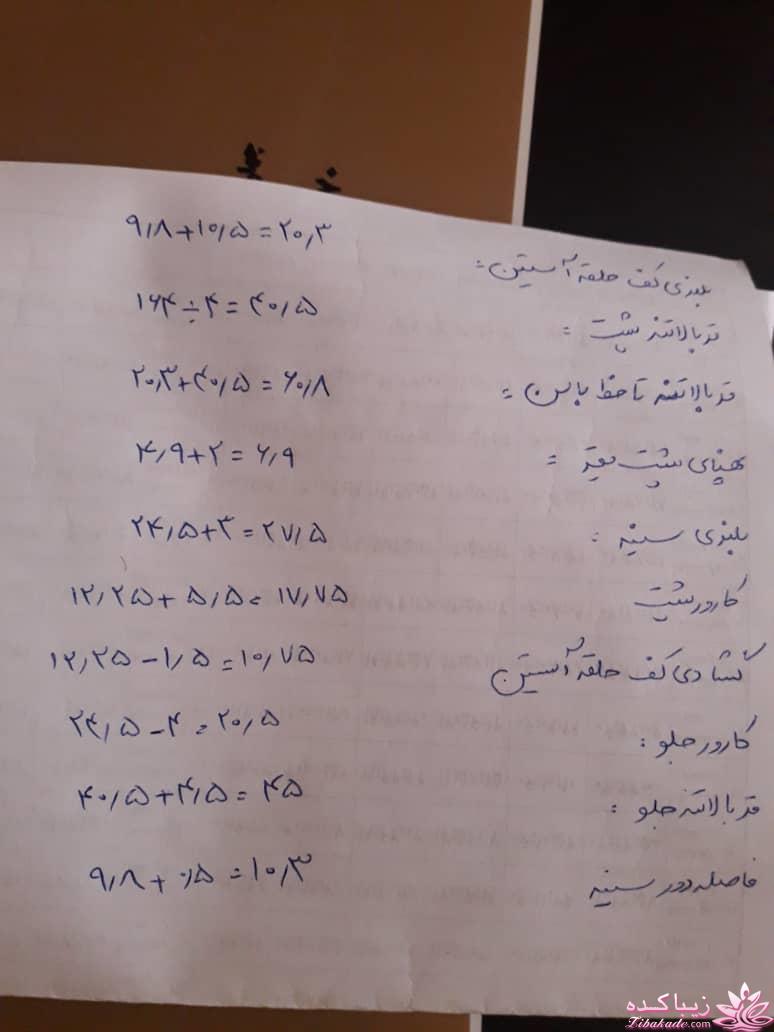 بلندی کف حلقه آستین: ۹٫۸+۱۰٫۵=۲۰٫۳
قد بالاتنه پشت = ۱۶۴÷۴=۴۰٫۵
قد بالاتنه تا خط باسن = ۲۰٫۳+۴۰٫۵=۶۰٫۸
پهنای پشت یقه = ۴٫۹+۲=۶٫۹
بلندی سینه: ۲۴٫۵+۳=۲۷٫۵
کارور پشت ۱۲٫۲۵+۵٫۵=۱۷٫۷۵
گشادی کف حلقه آستین ۱۲٫۲۵-۱٫۵=۱۰٫۷۵
کارور جلو: ۲۴٫۵-۴=۲۰٫۵
قد بالاتنه جلو: ۴۰٫۵+۴٫۵=۴۵
فاصله دور سینه ۹٫۸+۰٫۵=۱۰٫۳
زیباکده
Zibakade.com